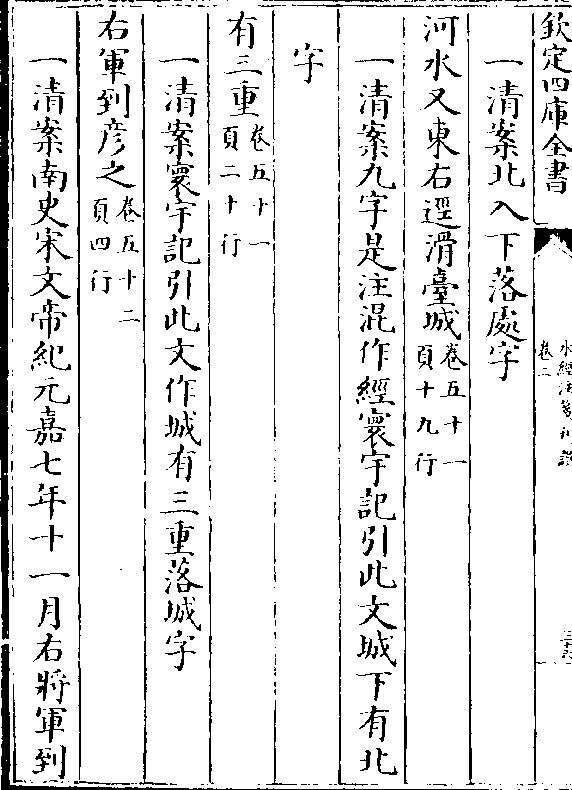 欽定四庫全書
水經注箋刊誤
卷二
一清案北入下落處字
河水又東右逕滑臺城卷五十一
頁十九行
一清案九字是注混作經寰宇記引此文城下有北
字
有三重卷五十一
頁二十行
一清案寰宇記引此文作城有三重落城字
右軍到彦之卷五十二
頁四行
一清案南史宋文帝紀元嘉七年十一月右將軍到